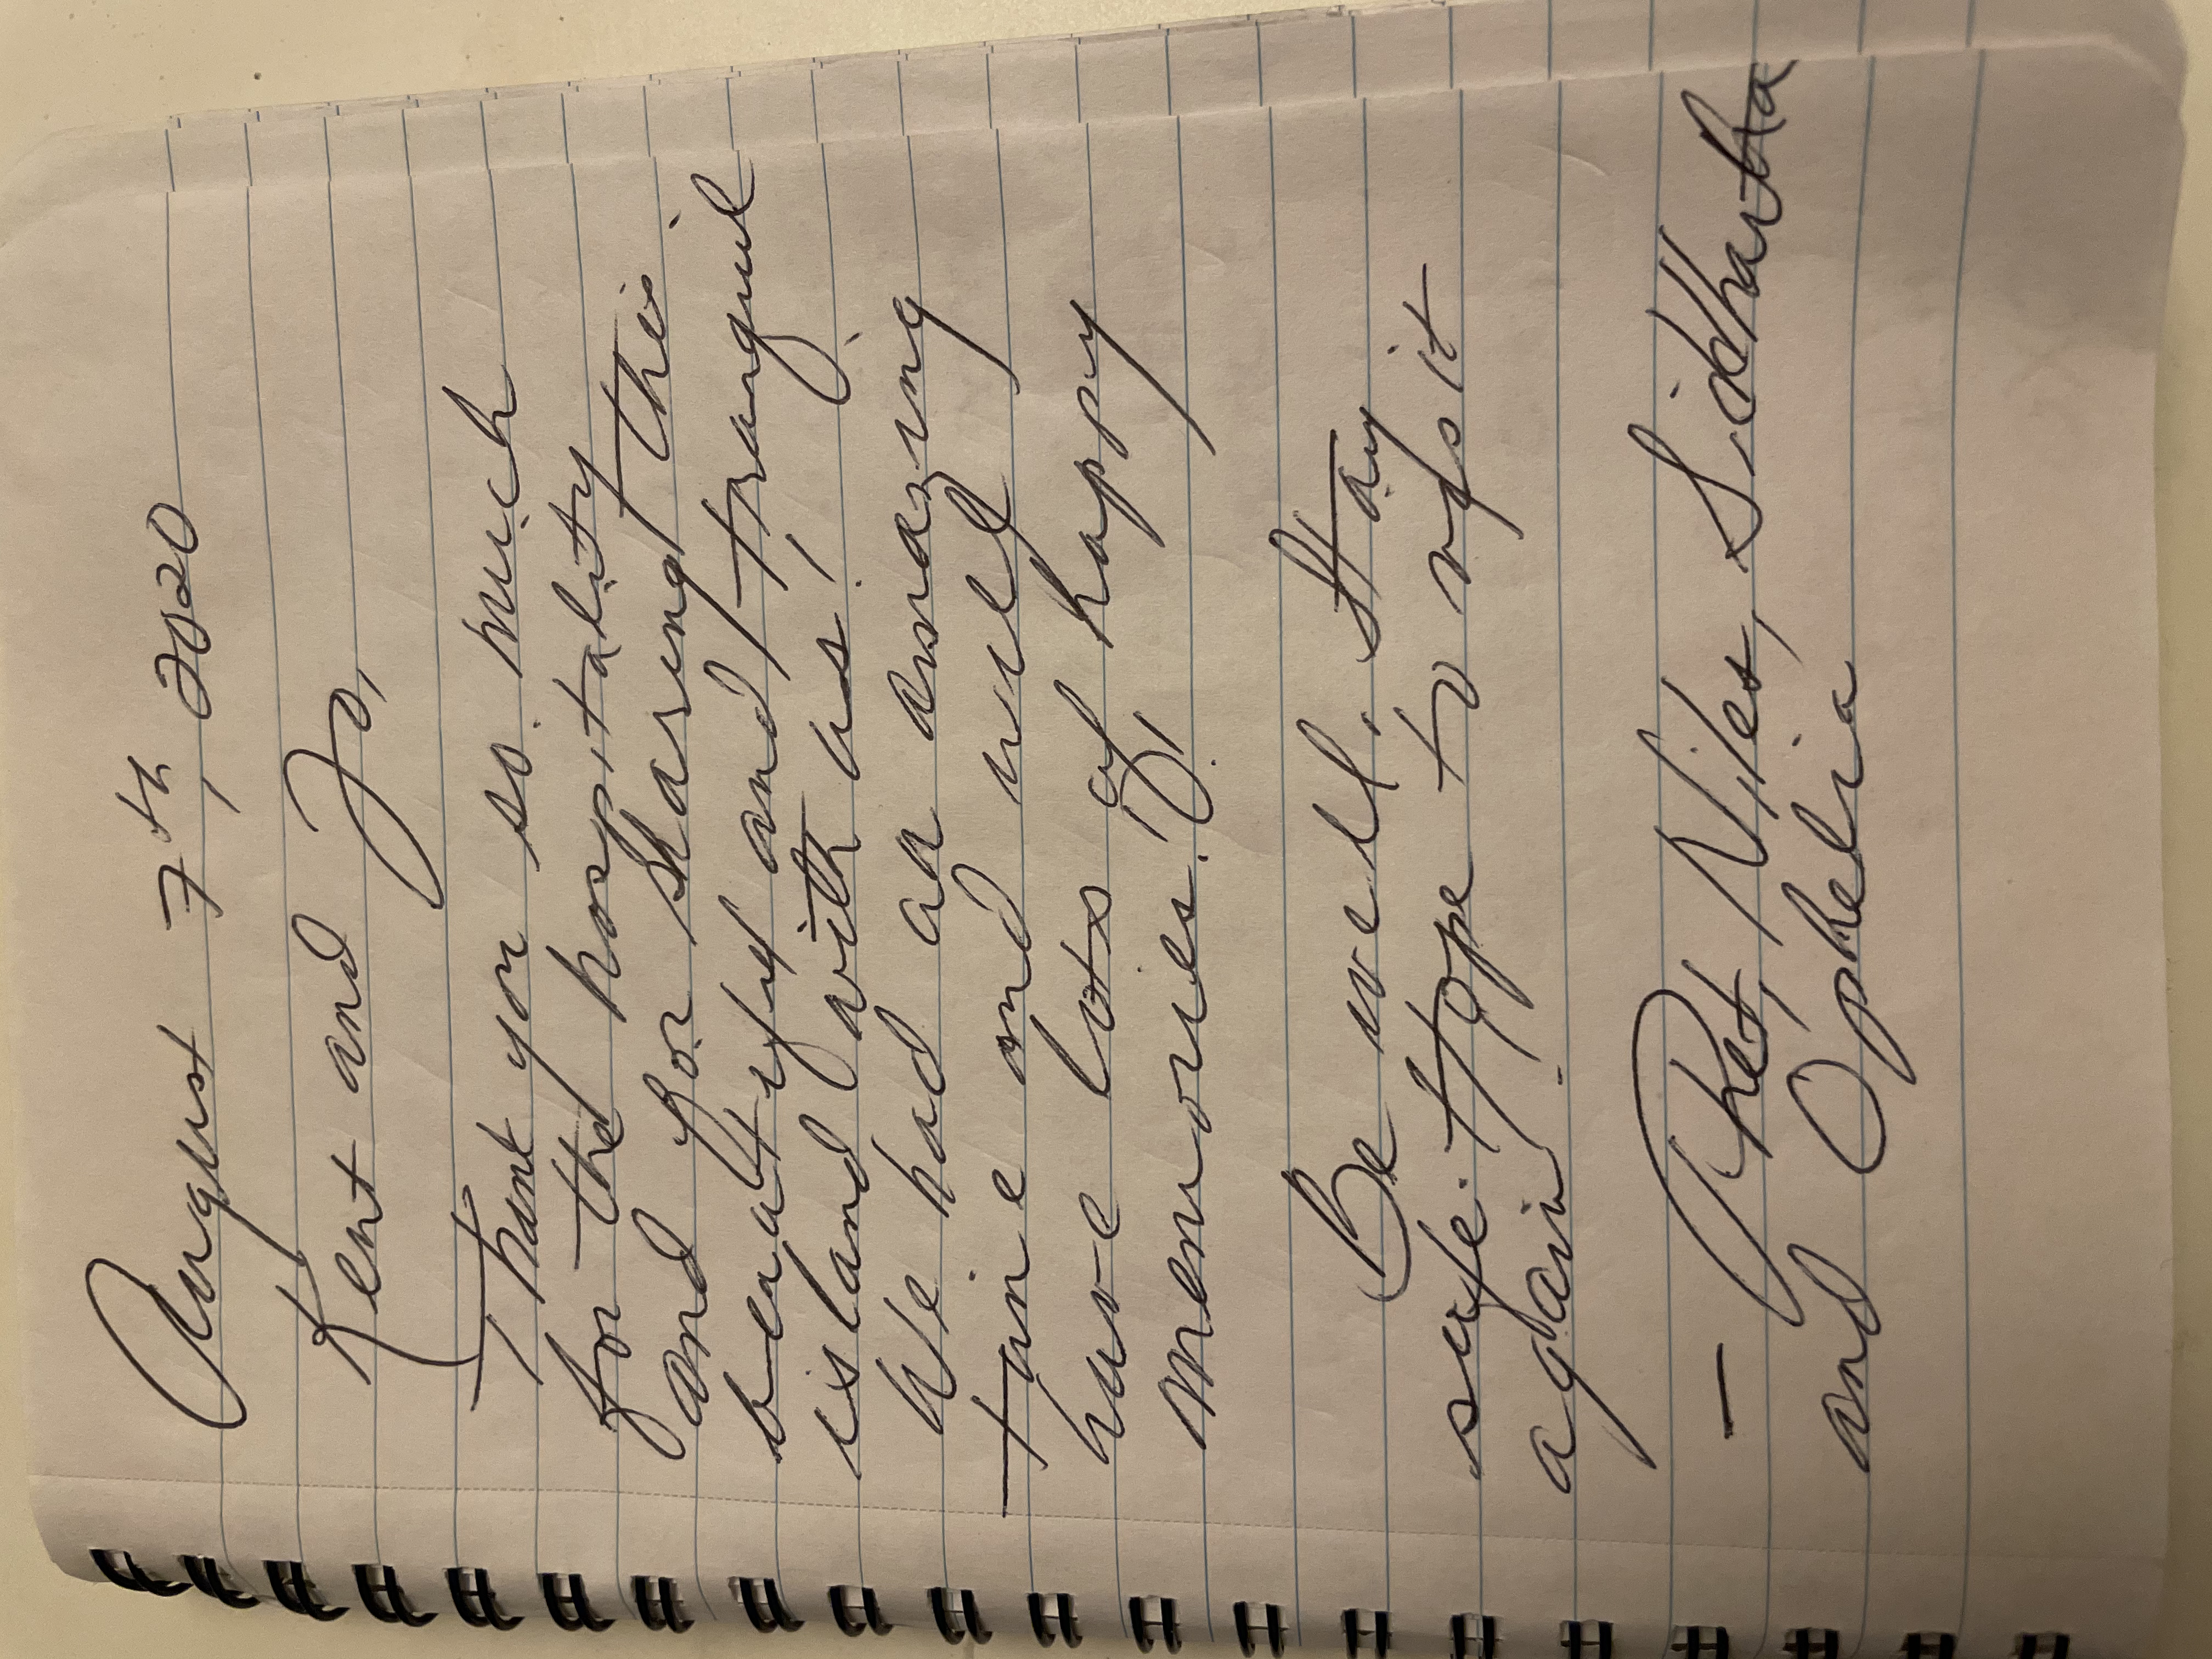 August 7th, 2020
Kent and Jo,
Thank you so much
for the hospitality
and for sharing this
beautiful and tranquil
island with us!
We had an amazing
time and will
have lots of happy
memories!!
Be well. Stay
safe. Hope to visit
again!
- Niles, Siddhartha
and Ophelia